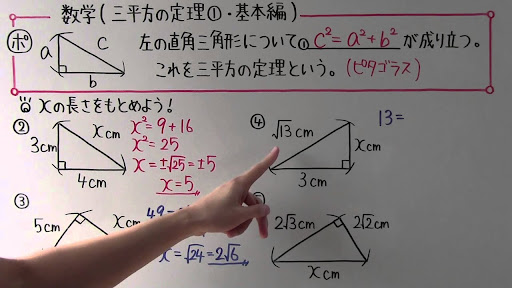 数学(三平方の定理①・基本編)
ポ 左の直角三角形について① c²=a²+b² が成り立つ。
a c b
これを三平方の定理という。(ピタゴラス)
xの長さをもとめよう!
② 3cm xcm 4cm
x²=9+16
x²=25
x=±√25=±5
x=5
④ √13cm xcm 3cm
13=
③ 5cm xcm
49
x=√24=2√6
2√3cm 2√2cm
xcm